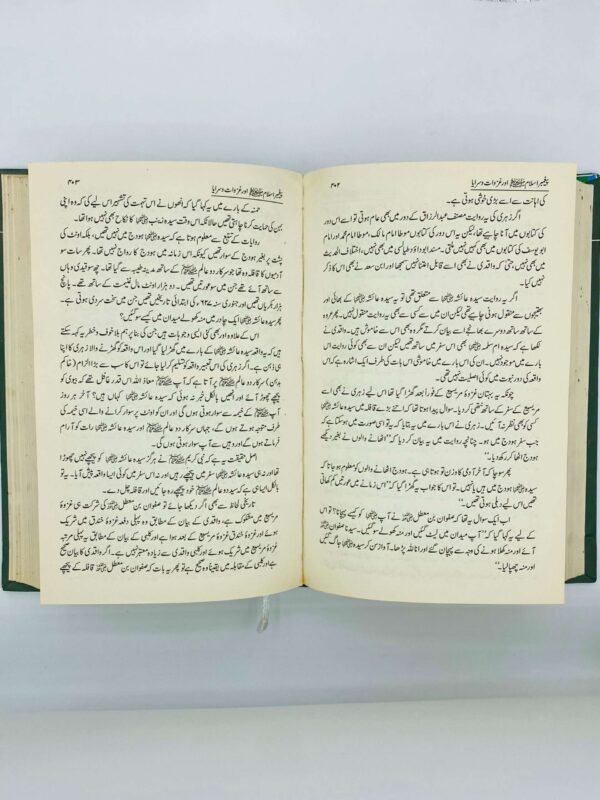 ۴۰۲ پیغمبر اسلام ﷺ اور غزوات و سرایا
کی اہانت سے اسے بڑی خوشی ہوتی ہے۔
اگر زہری کی یہ روایت مصنف عبدالرزاق کے دور میں بھی عام ہوتی تو اسے اس دور
کی کتابوں میں آنا چاہیے تھا، لیکن یہ اس دور کی کتابوں موطا امام مالک، موطا امام محمد اور امام
ابو یوسف کی کتابوں میں بھی کہیں نہیں ملتی۔ مسند ابوداؤد طیالسی میں بھی نہیں، اختلاف الحدیث
میں بھی نہیں، حتیٰ کہ واقدی نے بھی اسے قابل اعتنا نہیں سمجھا اور ابن سعد نے بھی اس کا ذکر
نہیں کیا۔
اگر یہ روایت سیدہ عائشہ رضی اللہ عنہا سے متعلق تھی تو یہ سیدہ عائشہ رضی اللہ عنہا کے بھائی اور
بھتیجوں سے منقول ہونی چاہیے تھی لیکن ان میں سے کسی سے بھی یہ روایت منقول نہیں۔ پھر عروہ
کے ساتھ ساتھ دوسرے بھانجے اسے بیان کرتے مگر وہ بھی اس سے خاموش ہیں۔ واقدی نے
لکھا ہے کہ سیدہ ام سلمہ رضی اللہ عنہا بھی اس سفر میں ساتھ تھیں لیکن ان سے بھی کوئی روایت اس
بارے میں موجود نہیں۔ ان کی اس بارے میں خاموشی اس بات کی طرف ایک اشارہ ہے کہ اس
واقعہ کی دور نبوت میں کوئی اصلیت نہیں تھی۔
چونکہ یہ بہتان غزوۂ مریسیع کے فوراً بعد گھڑا گیا تھا اس لیے زہری نے بھی اسے
مریسیع کے سفر کے ساتھ نتھی کر دیا۔ سوال پیدا ہوتا تھا کہ اتنے بڑے قافلہ میں سیدہ عائشہ رضی اللہ عنہا
کسی کو بھی نظر نہ آئیں۔ زہری نے اس بارے میں یہ بتایا کہ یہ تو اسی صورت میں ہو سکتا ہے کہ
جب سفر ہودج میں ہو۔ چنانچہ روایت میں یہ بیان کر دیا کہ ”اٹھانے والوں نے بغیر دیکھے
ہودج اٹھا کر رکھ دیا۔“
پھر سوچا کہ آخر آدمی کا وزن تو ہوتا ہی ہے۔ ہودج اٹھانے والوں کو معلوم ہو جاتا کہ
سیدہ رضی اللہ عنہا ہودج میں ہیں یا نہیں۔ تو اس کا جواب یہ گھڑا گیا کہ ”اس زمانے میں عورتیں کم کھاتی
تھیں اس لیے دبلی ہوتی تھیں۔“
اب ایک سوال یہ تھا کہ صفوان بن معطل رضی اللہ عنہ نے آپ رضی اللہ عنہا کو کیسے پہچانا؟ تو اس
کے لیے یہ کہا گیا کہ ”آپ میدان میں لیٹ گئیں اور منہ کھولے سو گئیں۔ سیدنا صفوان رضی اللہ عنہ
آئے اور منہ کھلا ہونے کی وجہ سے پہچان گئے اور انا للہ پڑھا۔ آواز سن کر سیدہ رضی اللہ عنہا جاگ گئیں
اور منہ چھپا لیا۔“
پیغمبر اسلام ﷺ اور غزوات و سرایا ۴۰۳
حمنہ کے بارے میں یہ کہا گیا کہ انھوں نے اس تہمت کی تشہیر اس لیے کی کہ وہ اپنی
بہن کی حمایت کرنا چاہتی تھیں حالانکہ اس وقت سیدہ زینب رضی اللہ عنہا کا نکاح بھی نہیں ہوا تھا۔
روایات کے تتبع سے معلوم ہوتا ہے کہ سیدہ رضی اللہ عنہا ہودج میں نہیں تھیں، بلکہ اونٹ کی
پشت پر بغیر ہودج کے سوار تھیں کیونکہ اس زمانہ میں ہودج کا رواج نہیں تھا۔ پھر سات سو
آدمیوں کا قافلہ وہ تھا جو سرکار دو عالم ﷺ کے ساتھ مدینہ طیبہ سے گیا تھا۔ چھ سو قیدی وہاں
سے ساتھ آئے تھے جن میں سو عورتیں تھیں۔ دو ہزار اونٹ مال غنیمت کے ساتھ تھے۔ پانچ
ہزار بکریاں تھیں اور جنوری سنہ ۶۲۷ء کی ابتدائی تاریخیں تھیں جن میں سخت سردی ہوتی ہے۔
پھر سیدہ عائشہ رضی اللہ عنہا ایک چادر میں منہ کھولے میدان میں کیسے سو گئیں؟
اس کے علاوہ اور بھی کئی ایسی وجوہات ہیں جن کی بنا پر ہم بلا خوف و خطر یہ کہہ سکتے
ہیں کہ یہ واقعہ سیدہ عائشہ رضی اللہ عنہا کے بارے میں گھڑ لیا گیا اور اس واقعہ کو گھڑنے والا زہری کا اپنا
ہی ذہن ہے۔ اگر زہری کی اس حدیث واقعہ کو تسلیم کر لیا جائے تو اس کا سب سے بڑا الزام (خاکم
بدہن) سرکار دو عالم ﷺ پر آتا ہے کہ آپ ﷺ معاذ اللہ اس قدر غافل تھے کہ بیوی کو
پیچھے چھوڑ آئے اور انھیں بالکل خبر نہ ہوئی کہ سیدہ عائشہ رضی اللہ عنہا کہاں ہیں؟ آخر ہر روز
آپ ﷺ کے خیمہ سے سوار ہوتی ہوں گی اور ان کو اونٹ پر سوار کرانے والے اسی خیمہ کی
طرف متوجہ ہوتے ہوں گے، جہاں سرکار دو عالم ﷺ اور سیدہ عائشہ رضی اللہ عنہا رات کو آرام
فرماتے ہوں گے اور وہیں سے آپ سوار ہوتی ہوں گی۔
اصل حقیقت یہ ہے کہ نبی کریم ﷺ نے ہرگز سیدہ عائشہ رضی اللہ عنہا کو پیچھے نہیں چھوڑا
تھا اور نہ ہی سیدہ عائشہ رضی اللہ عنہا سفر میں پیچھے رہیں اور نہ اس سفر میں کوئی ایسا واقعہ پیش آیا۔ یہ تو
بالکل ایسا ہی ہے کہ سیدہ دو عالم ﷺ خود پیچھے رہ جائیں اور قافلہ چل دے۔
تاریخی لحاظ سے بھی اگر دیکھا جائے تو صفوان بن معطل رضی اللہ عنہ کی شرکت ہی غزوۂ
مریسیع میں مشکوک ہے، واقدی کے بیان کے مطابق وہ پہلی دفعہ غزوۂ خندق میں شریک
ہوئے اور غزوۂ خندق غزوۂ مریسیع کے بعد ہوا ہے اور کلبی کے بیان کے مطابق وہ پہلی مرتبہ
غزوۂ مریسیع میں شریک ہوئے اور کلبی واقدی سے زیادہ معتبر نہیں ہے۔ اگر واقدی کا بیان
کلبی کے مقابلہ میں یقیناً وہ صحیح ہے تو پھر یہ بات کہ صفوان بن معطل رضی اللہ عنہ قافلہ کے پیچھے